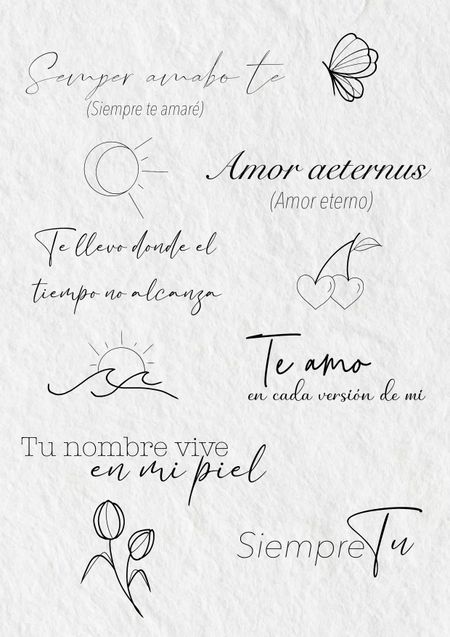 Semper amabo te
(Siempre te amaré)
Amor aeternus
(Amor eterno)
Te llevo donde el
tiempo no alcanza
Te amo
en cada versión de mi
Tu nombre vive
en mi piel
Siempre Tu